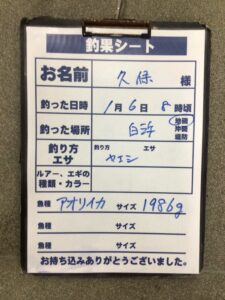 釣果シート
お名前 久保 様
釣った日時 1月6日8時頃
釣った場所 白浜 地磯 沖磯 堤防
釣り方 エサ 釣り方 ヤエン エサ
ルアー、エギの種類・カラー
魚種 アオリイカ サイズ 1986g
魚種 サイズ
魚種 サイズ
お持ち込みありがとうございました。